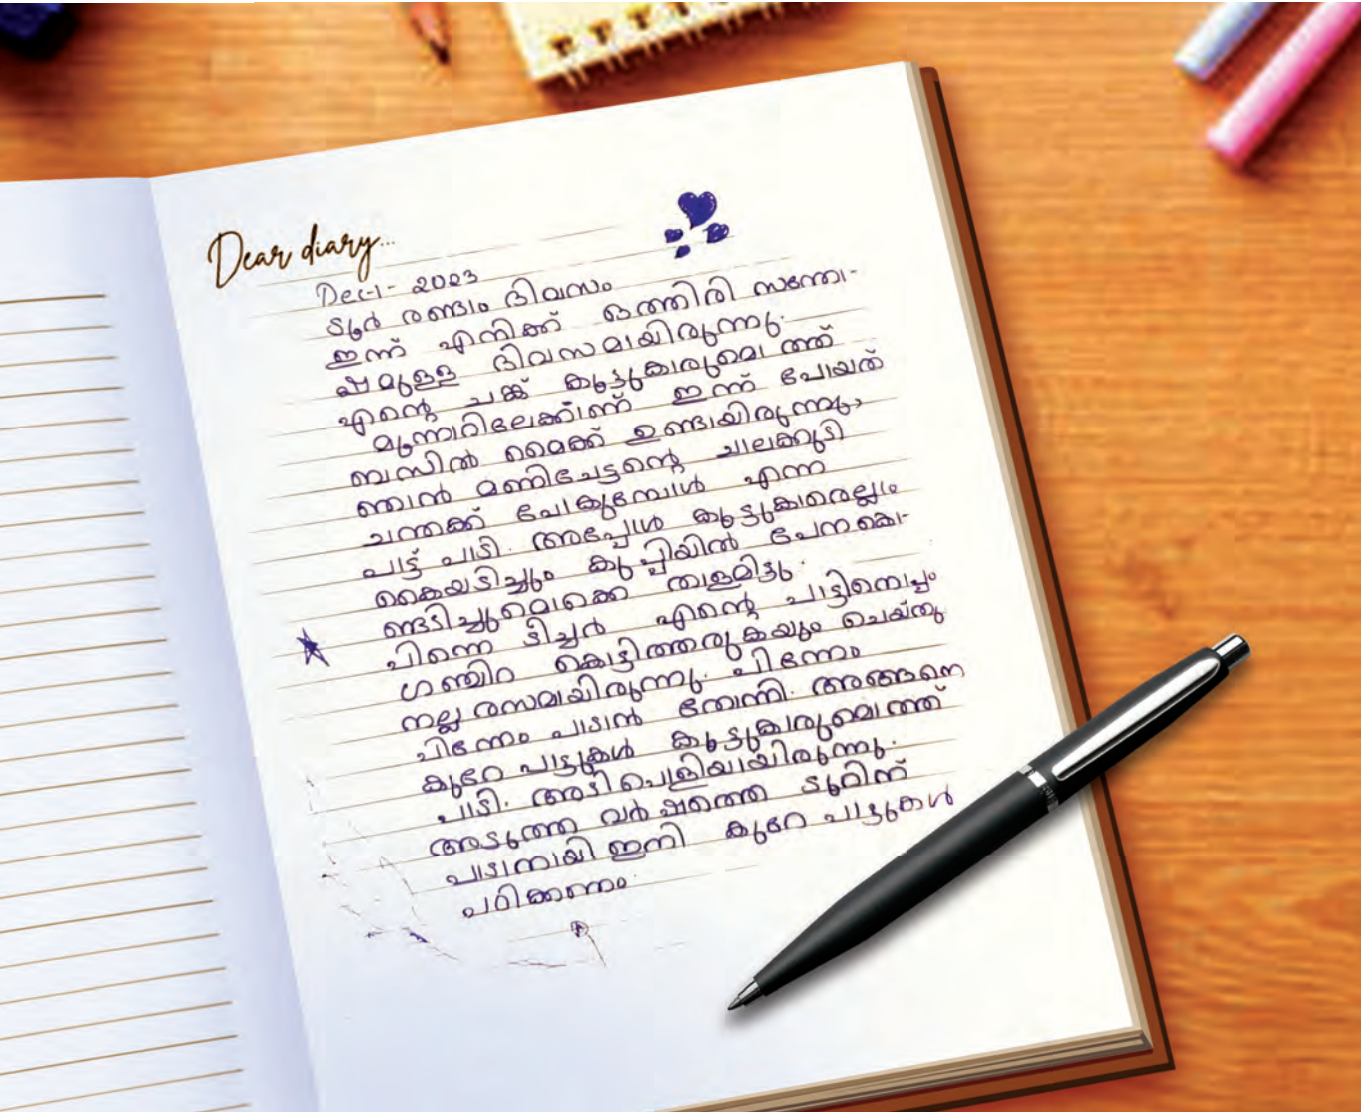 Dear diary...
Dec-1- 2023
ടൂർ രണ്ടാം ദിവസം
ഇന്ന് എനിക്ക് ഒത്തിരി സന്തോ-
ഷമുള്ള ദിവസമായിരുന്നു.
എന്റെ ചങ്ക് കൂട്ടുകാരുമൊത്ത്
മൂന്നാറിലേക്കാണ് ഇന്ന് പോയത്
ബസിൽ മൈക്ക് ഉണ്ടായിരുന്നു,
ഞാൻ മണിചേട്ടന്റെ ചാലക്കുടി
ചന്തക്ക് പോകുമ്പോൾ എന്ന
പാട്ട് പാടി. അപ്പോൾ കൂട്ടുകാരെല്ലാം
കൈയടിച്ചും കുപ്പിയിൽ പേനകൊ-
ണ്ടടിച്ചുമൊക്കെ താളമിട്ടു.
പിന്നെ ടീച്ചർ എന്റെ പാട്ടിനൊപ്പം
ഗഞ്ചിറ കൊട്ടിത്തരുകയും ചെയ്തു
നല്ല രസമായിരുന്നു. പിന്നേം
പിന്നേം പാടാൻ തോന്നി. അങ്ങനെ
കുറേ പാട്ടുകൾ കൂട്ടുകാരുമൊത്ത്
പാടി. അടിപൊളിയായിരുന്നു.
അടുത്ത വർഷത്തെ ടൂറിന്
പാടാനായി ഇനി കുറേ പാട്ടുകൾ
പഠിക്കണം.